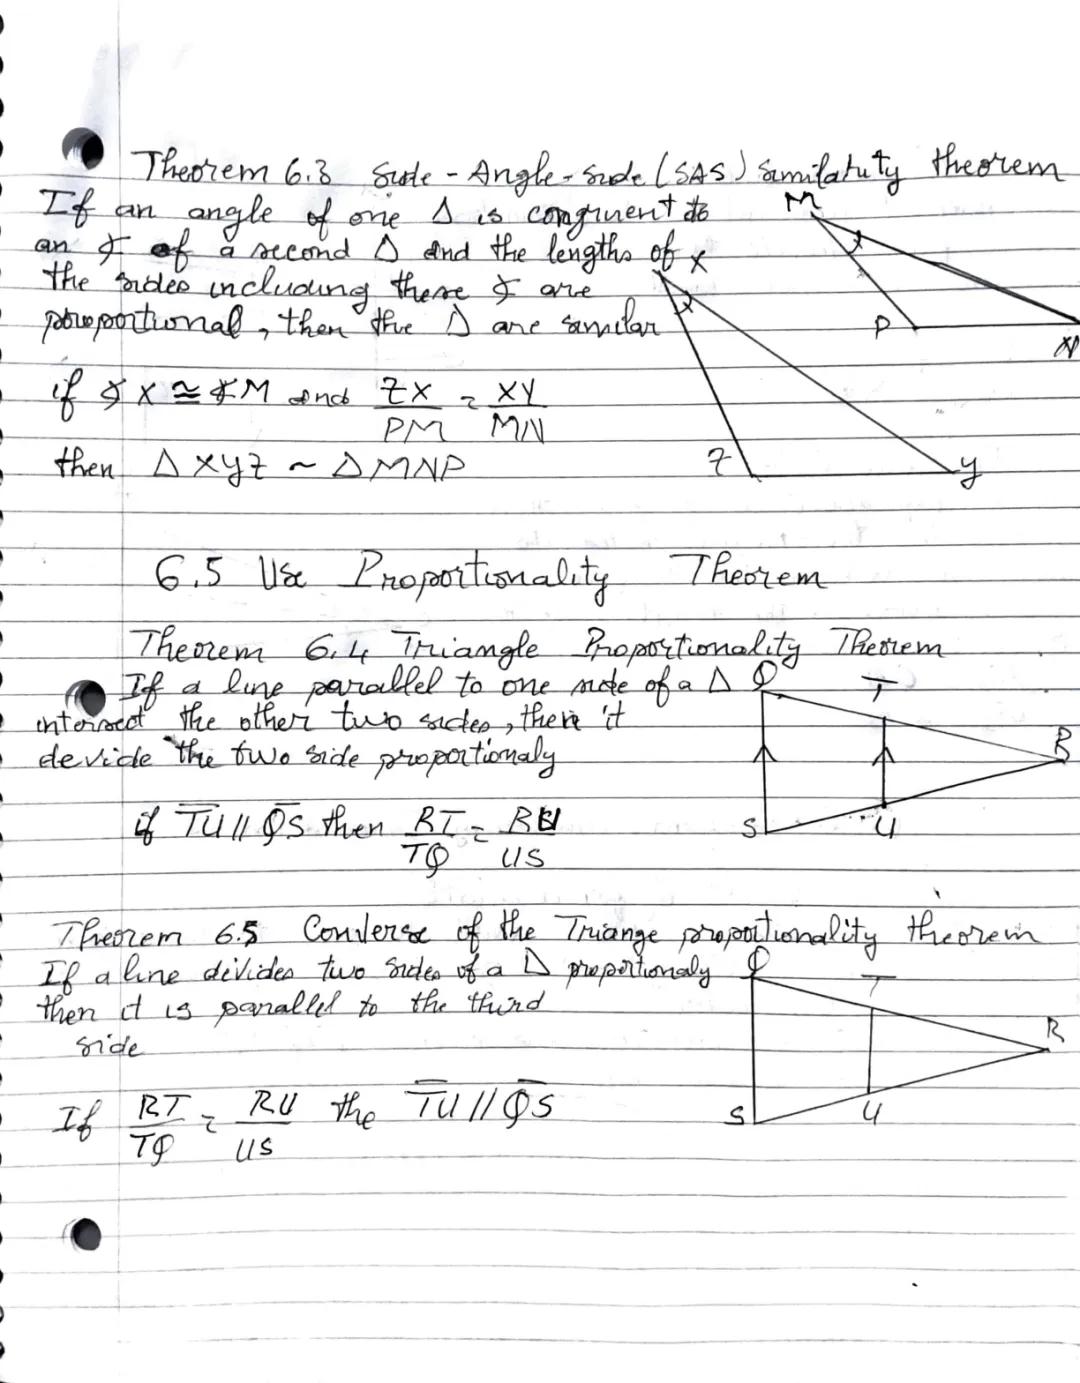 Theorem 6.3 Side - Angle - Side (SAS) Similatuty theorem
If an angle of one Δ is congruent to
an ∡ of a second Δ and the lengths of
the sides including these ∡ are
proportional, then the Δ are similar
M
X
P
N
if ∡ X ≅ ∡ M and ZX/PM = XY/MN
then Δ XYZ ~ Δ MNP
Z
Y
6.5 Use Proportionality Theorem
Theorem 6.4 Triangle Proportionality Theorem
If a line parallel to one side of a Δ
intersect the other two sides, then it
devide the two side proportionaly
Q
T
R
S
U
if TU || QS then RT/TQ = RU/US
Theorem 6.5 Converse of the Triange proportionality theorem
If a line devides two sides of a Δ proportionaly
then it is parallel to the third
side
Q
T
R
S
U
If RT/TQ = RU/US the TU || QS